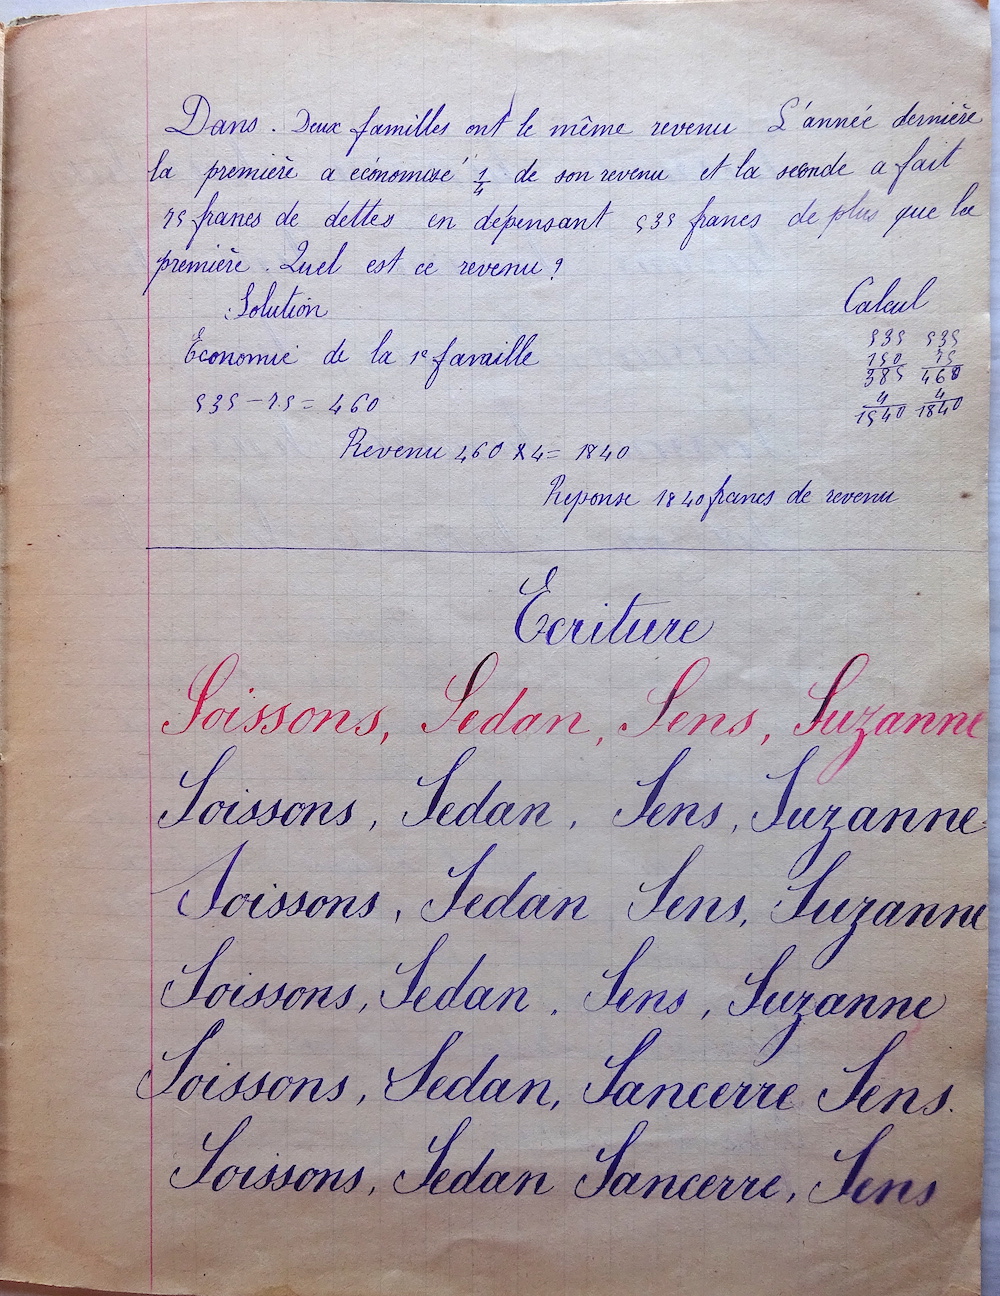 Dans. Deux familles ont le même revenu L'année dernière
la première a économisé 1/4 de son revenu et la seconde a fait
75 francs de dettes en dépensant 535 francs de plus que la
première. Quel est ce revenu?
Solution
Calcul
Économie de la 1e famille
535 535
150 75
385 460
535 – 75 = 460
4 4
1540 1840
Revenu 460 x 4 = 1840
Reponse 1840 francs de revenu
Ecriture
Soissons, Sedan, Sens, Suzanne
Soissons, Sedan, Sens, Suzanne
Soissons, Sedan Sens, Suzanne
Soissons, Sedan, Sens, Suzanne
Soissons, Sedan, Sancerre Sens.
Soissons, Sedan Sancerre, Sens